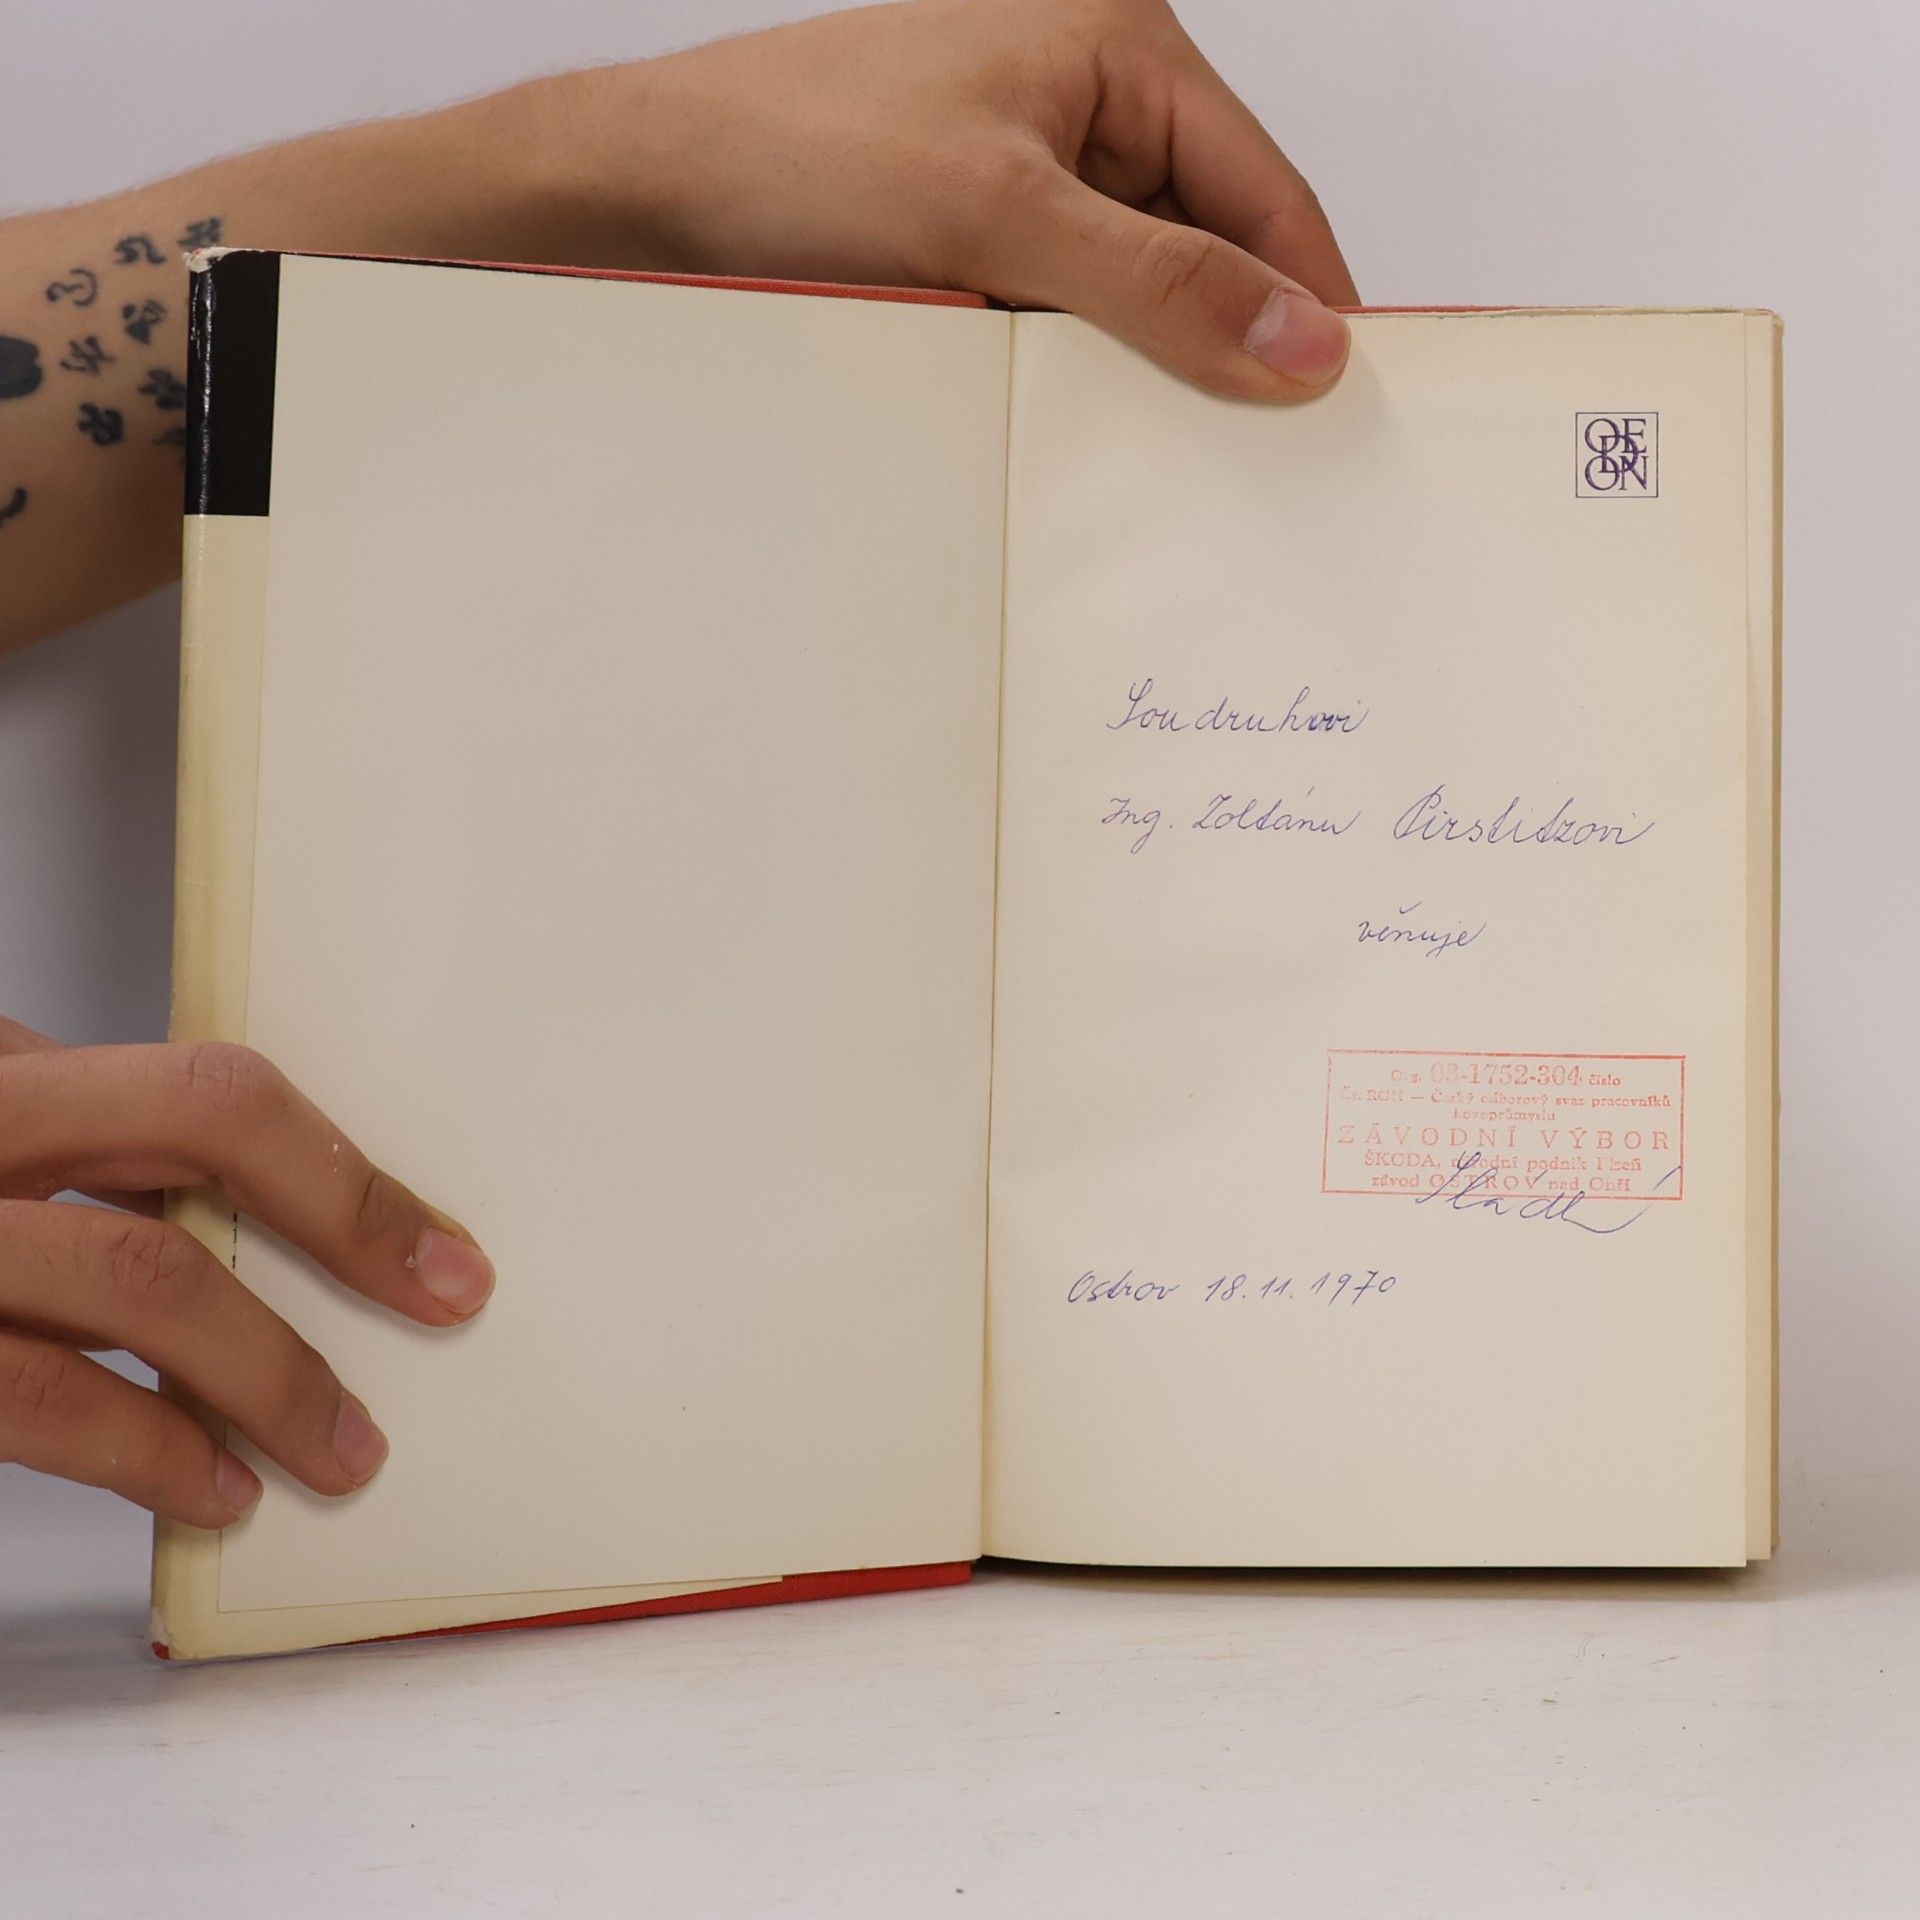 ODEON
Soudruhovi
Ing. Zoltánu Pirstitzovi
věnuje
Org. 03-1752-304 číslo
Čs. ROH — Český odborový svaz pracovníků
kovoprůmyslu
ZÁVODNÍ VÝBOR
ŠKODA, národní podnik Plzeň
závod OSTROV nad Ohří
Ostrov 18.11.1970